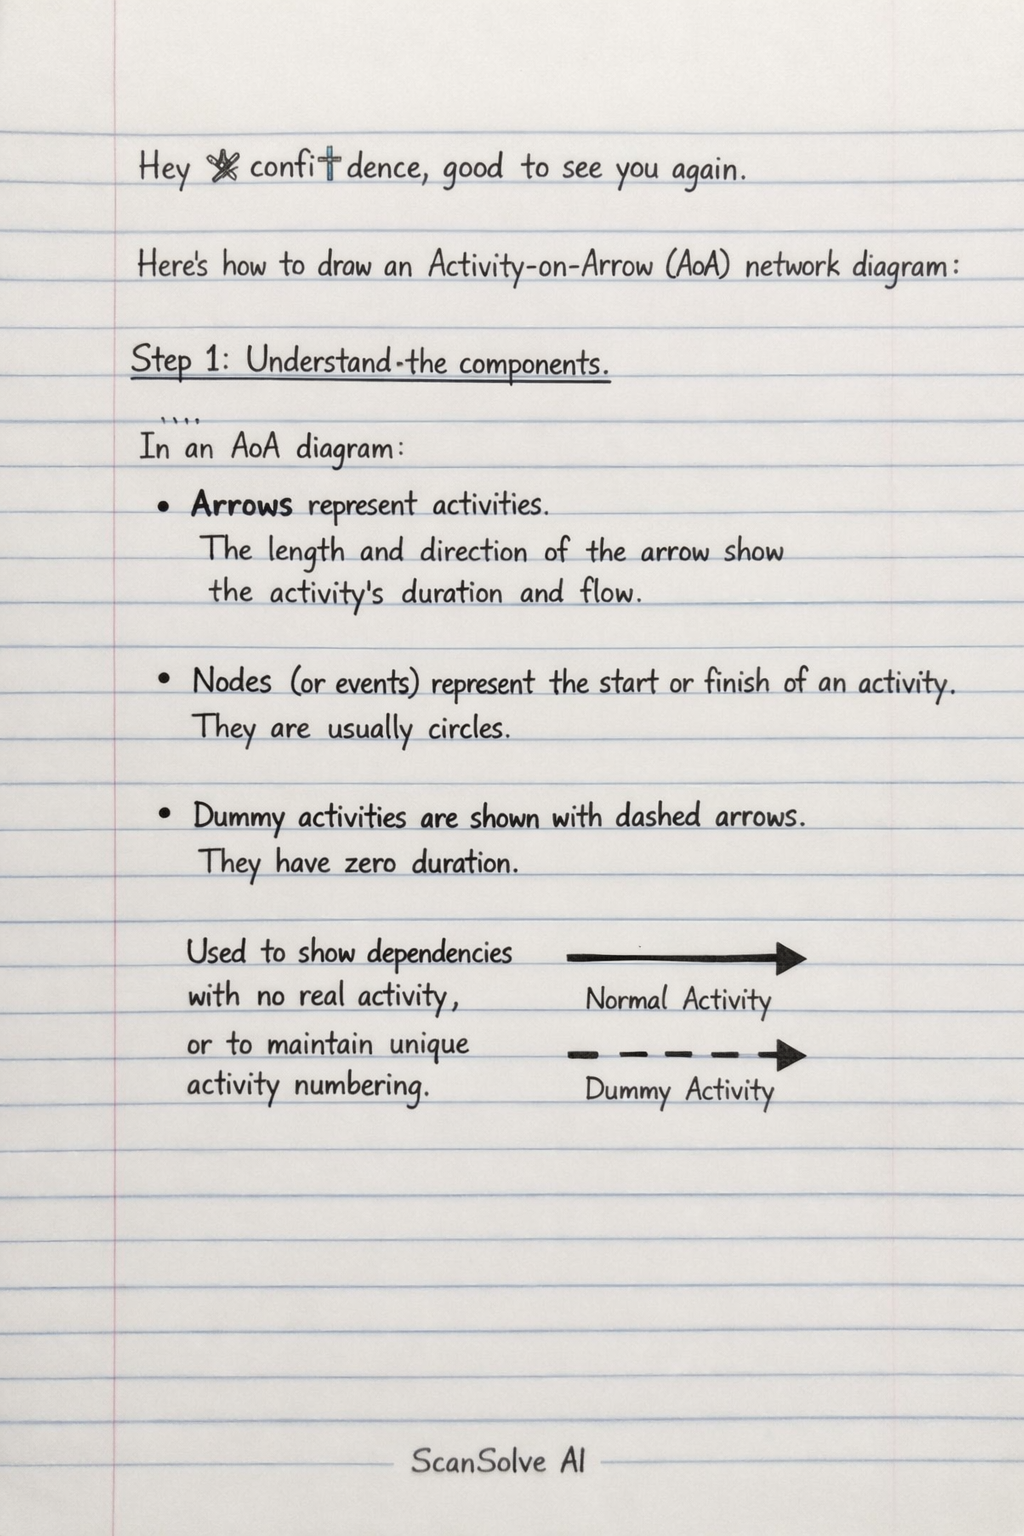 Hey confi✝dence, good to see you again.
Here's how to draw an Activity-on-Arrow (AoA) network diagram:
Step 1: Understand-the components.
In an AoA diagram:
• Arrows represent activities.
The length and direction of the arrow show
the activity's duration and flow.
• Nodes (or events) represent the start or finish of an activity.
They are usually circles.
• Dummy activities are shown with dashed arrows.
They have zero duration.
Used to show dependencies
with no real activity,
or to maintain unique
activity numbering.
Normal Activity
Dummy Activity
ScanSolve AI